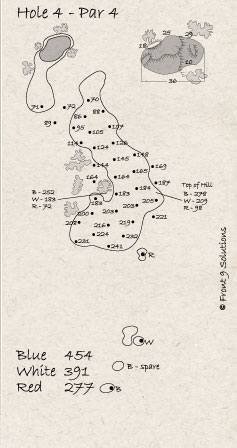 Hole 4 - Par 4
25
29
18
10
36
71
72
70
88
86
89
95
107
105
114
124
126
145
148
144
165
169
164
164
184
187
B - 252
W - 183
R - 72
Top of Hill
B - 278
W - 209
R - 98
183
183
205
200
203
203
221
208
216
219
224
232
231
241
R
W
Blue 454
White 391
Red 277
B - spare
B
© Front 9 Solutions